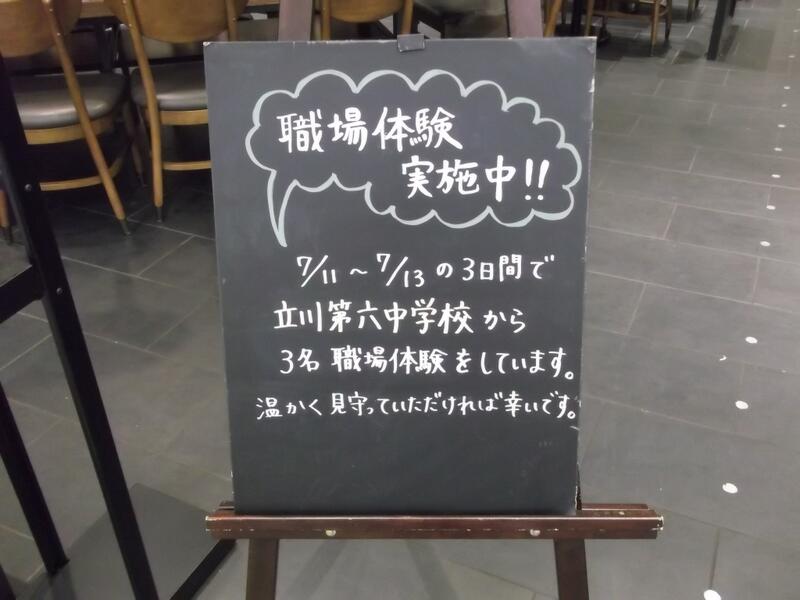 職場体験
実施中!!
7/11～7/13の3日間で
立川第六中学校から
3名 職場体験をしています。
温かく見守っていただければ幸いです。